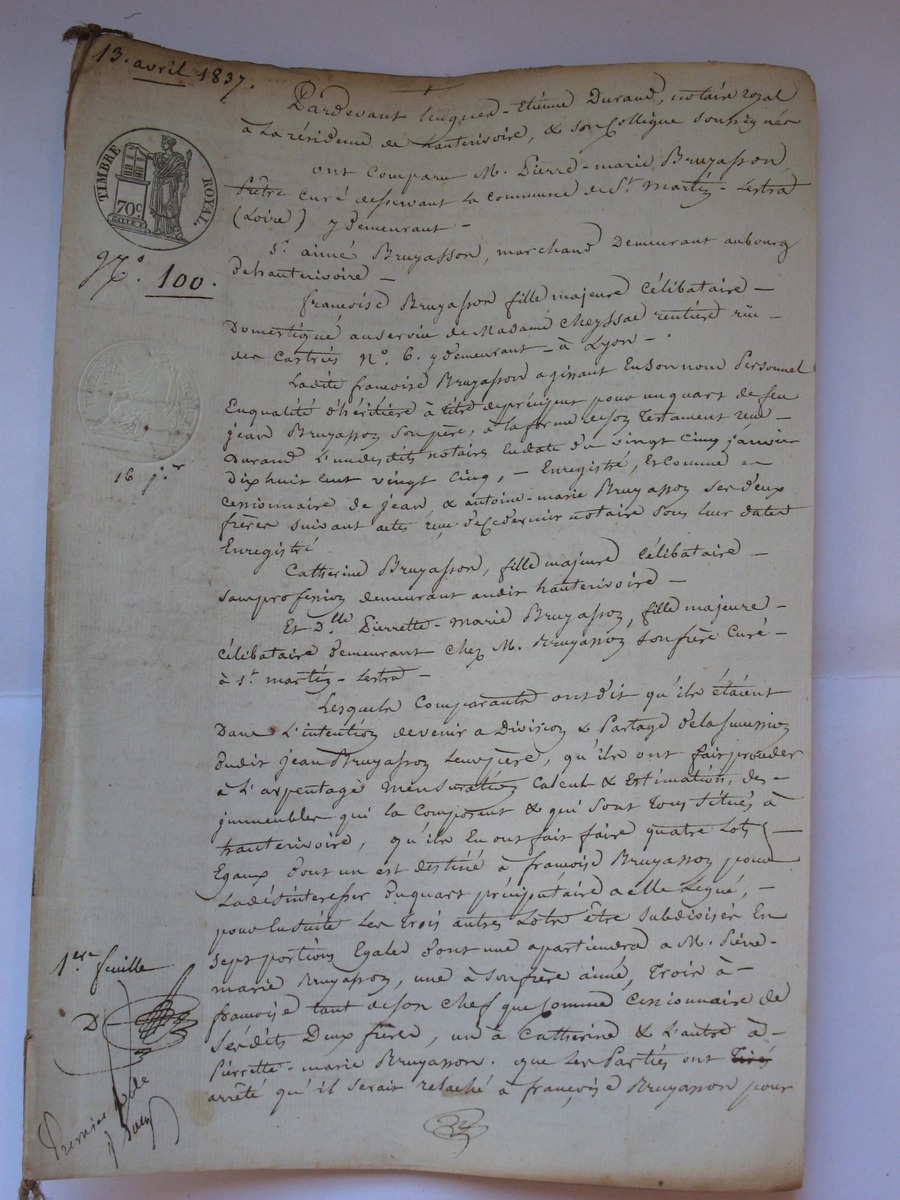 13. avril 1837.
Pardevant hugues-Etienne Durand, notaire royal
à La résidence de hauterivoire, & son Collègue soussignés
ont comparu M. Pierre-marie Bruyasson
Prêtre Curé desservant La Commune de St. martin-Lestra
(Loire) y demeurant -
TIMBRE ROYAL.
70c
N.° 100.
Sr. aimé Bruyasson, marchand Demeurant au bourg
de hauterivoire -
françoise Bruyasson fille majeure Célibataire -
Domestique au service de Madame Cheyssac rentière rue -
des Castries N.° 6. y demeurant - à Lyon -
Ladite françoise Bruyasson agissant En son nom Personnel
En qualité d'héritière à titre de préciput pour un quart de feu
jean Bruyasson son père, à la forme de son Testament reçu -
Durand L'un desdits notaires En date du vingt Cinq janvier
Dix huit Cent vingt Cinq, - Enregistré, Et Comme -
Cessionnaire de jean, & antoine-marie Bruyasson ses deux
frères suivant actes reçus de Ce dernier notaire sous leur dates
Enregistré
16 j.er
Catherine Bruyasson, fille majeure Célibataire -
sans profession demeurant audit hauterivoire -
Et D.lle Pierrette-marie Bruyasson, fille majeure -
Célibataire demeurant chez M. Bruyasson son frère Curé -
à St. martin-Lestra -
Lesquels Comparants ont dit qu'ils étaient
Dans L'intention de venir a Division & Partage de la succession
dudit jean Bruyasson Leur père, qu'ils ont fait procéder
à L'arpentage Mensuration Calcul & Estimation, des -
immeubles qui la Composent & qui sont tous situés à
hauterivoire, qu'ils En ont fait faire quatre Lots -
Egaux dont un est destiné à françoise Bruyasson pour
La désintéresser du quart préciputaire a elle Légué, -
pour Ensuite Les trois autres Lots être subdivisés En
sept portions Egales dont une apartiendra a M. Pierre-
marie Bruyasson, une à son frère aimé, Trois à -
françoise tant de son Chef que Comme Cessionnaire de
Ses dits Deux frères, un à Catherine & L'autre à -
Pierrette-marie Bruyasson. que Les Parties ont tirés
arrêté qu'il serait relaché à françoise Bruyasson pour
1ere feuille
D
Premier rôle